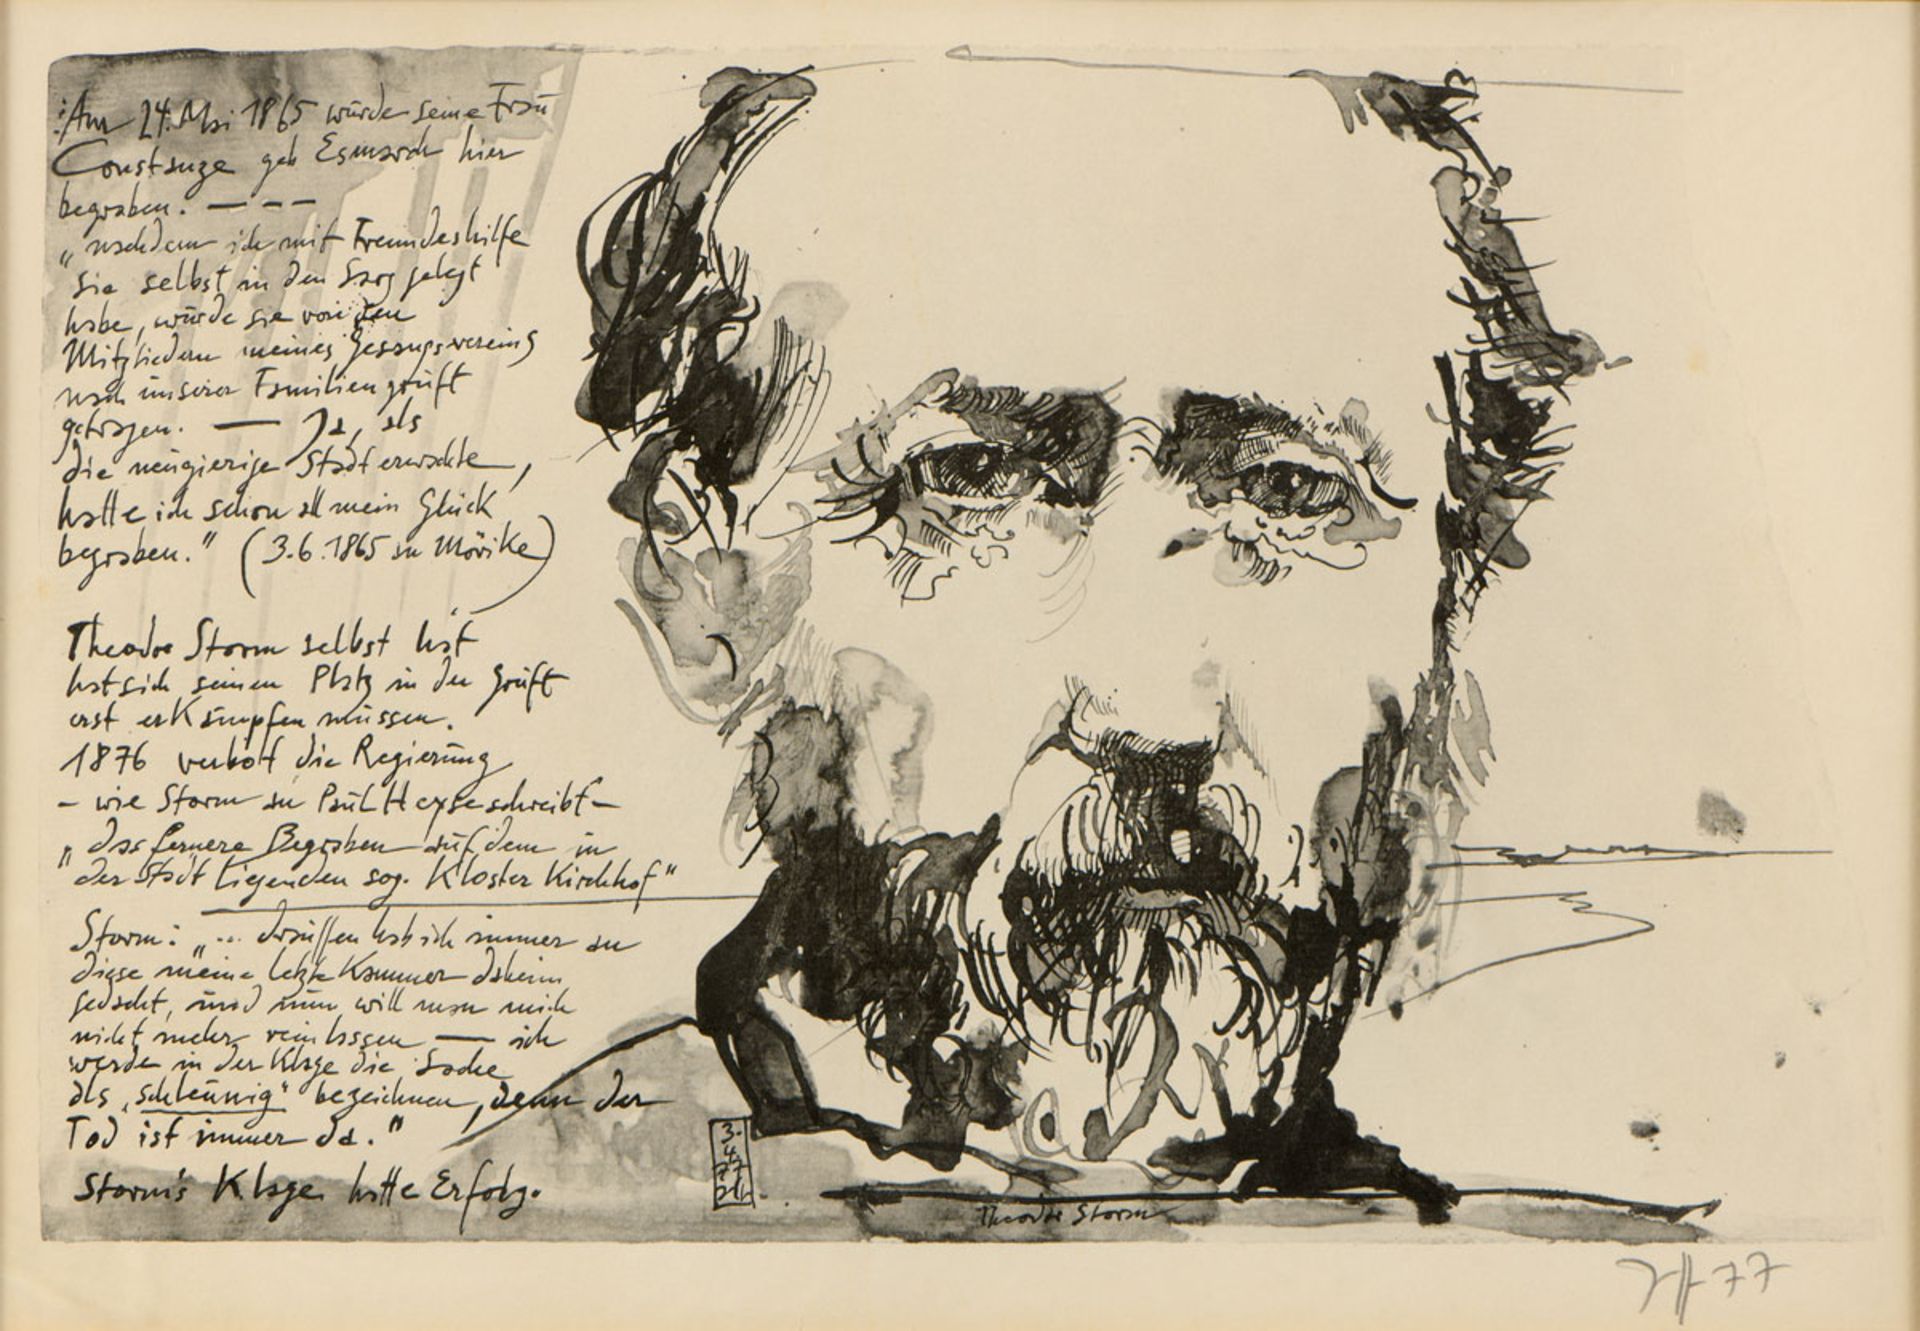 Am 24. Mai 1865 wurde seine Frau
Constanze geb Esmarch hier
begraben. — – –
„nachdem ich mit Freundeshilfe
sie selbst in den Sarg gelegt
habe, wurde sie von den
Mitgliedern meines Gesangsvereins
nach unserer Familiengruft
getragen. — Ja, als
die neugierige Stadt erwachte,
hatte ich schon all mein Glück
begraben." (3.6.1865 an Mörike)
Theodor Storm selbst hat
hat sich seinen Platz in der Gruft
erst erkämpfen müssen.
1876 verbot die Regierung
– wie Storm an Paul Heyse schreibt –
„das fernere Begraben auf dem in
der Stadt liegenden sog. Kloster Kirchhof"
Storm: „... draußen hab ich immer an
diese meine letzte Kammer daheim
gedacht, und nun will man mich
nicht mehr reinlassen — ich
werde in der Klage die Sache
als „schleunig" bezeichnen, denn der
Tod ist immer da."
Storm's Klage hatte Erfolg.
3.
4.
77
Theodor Storm
77